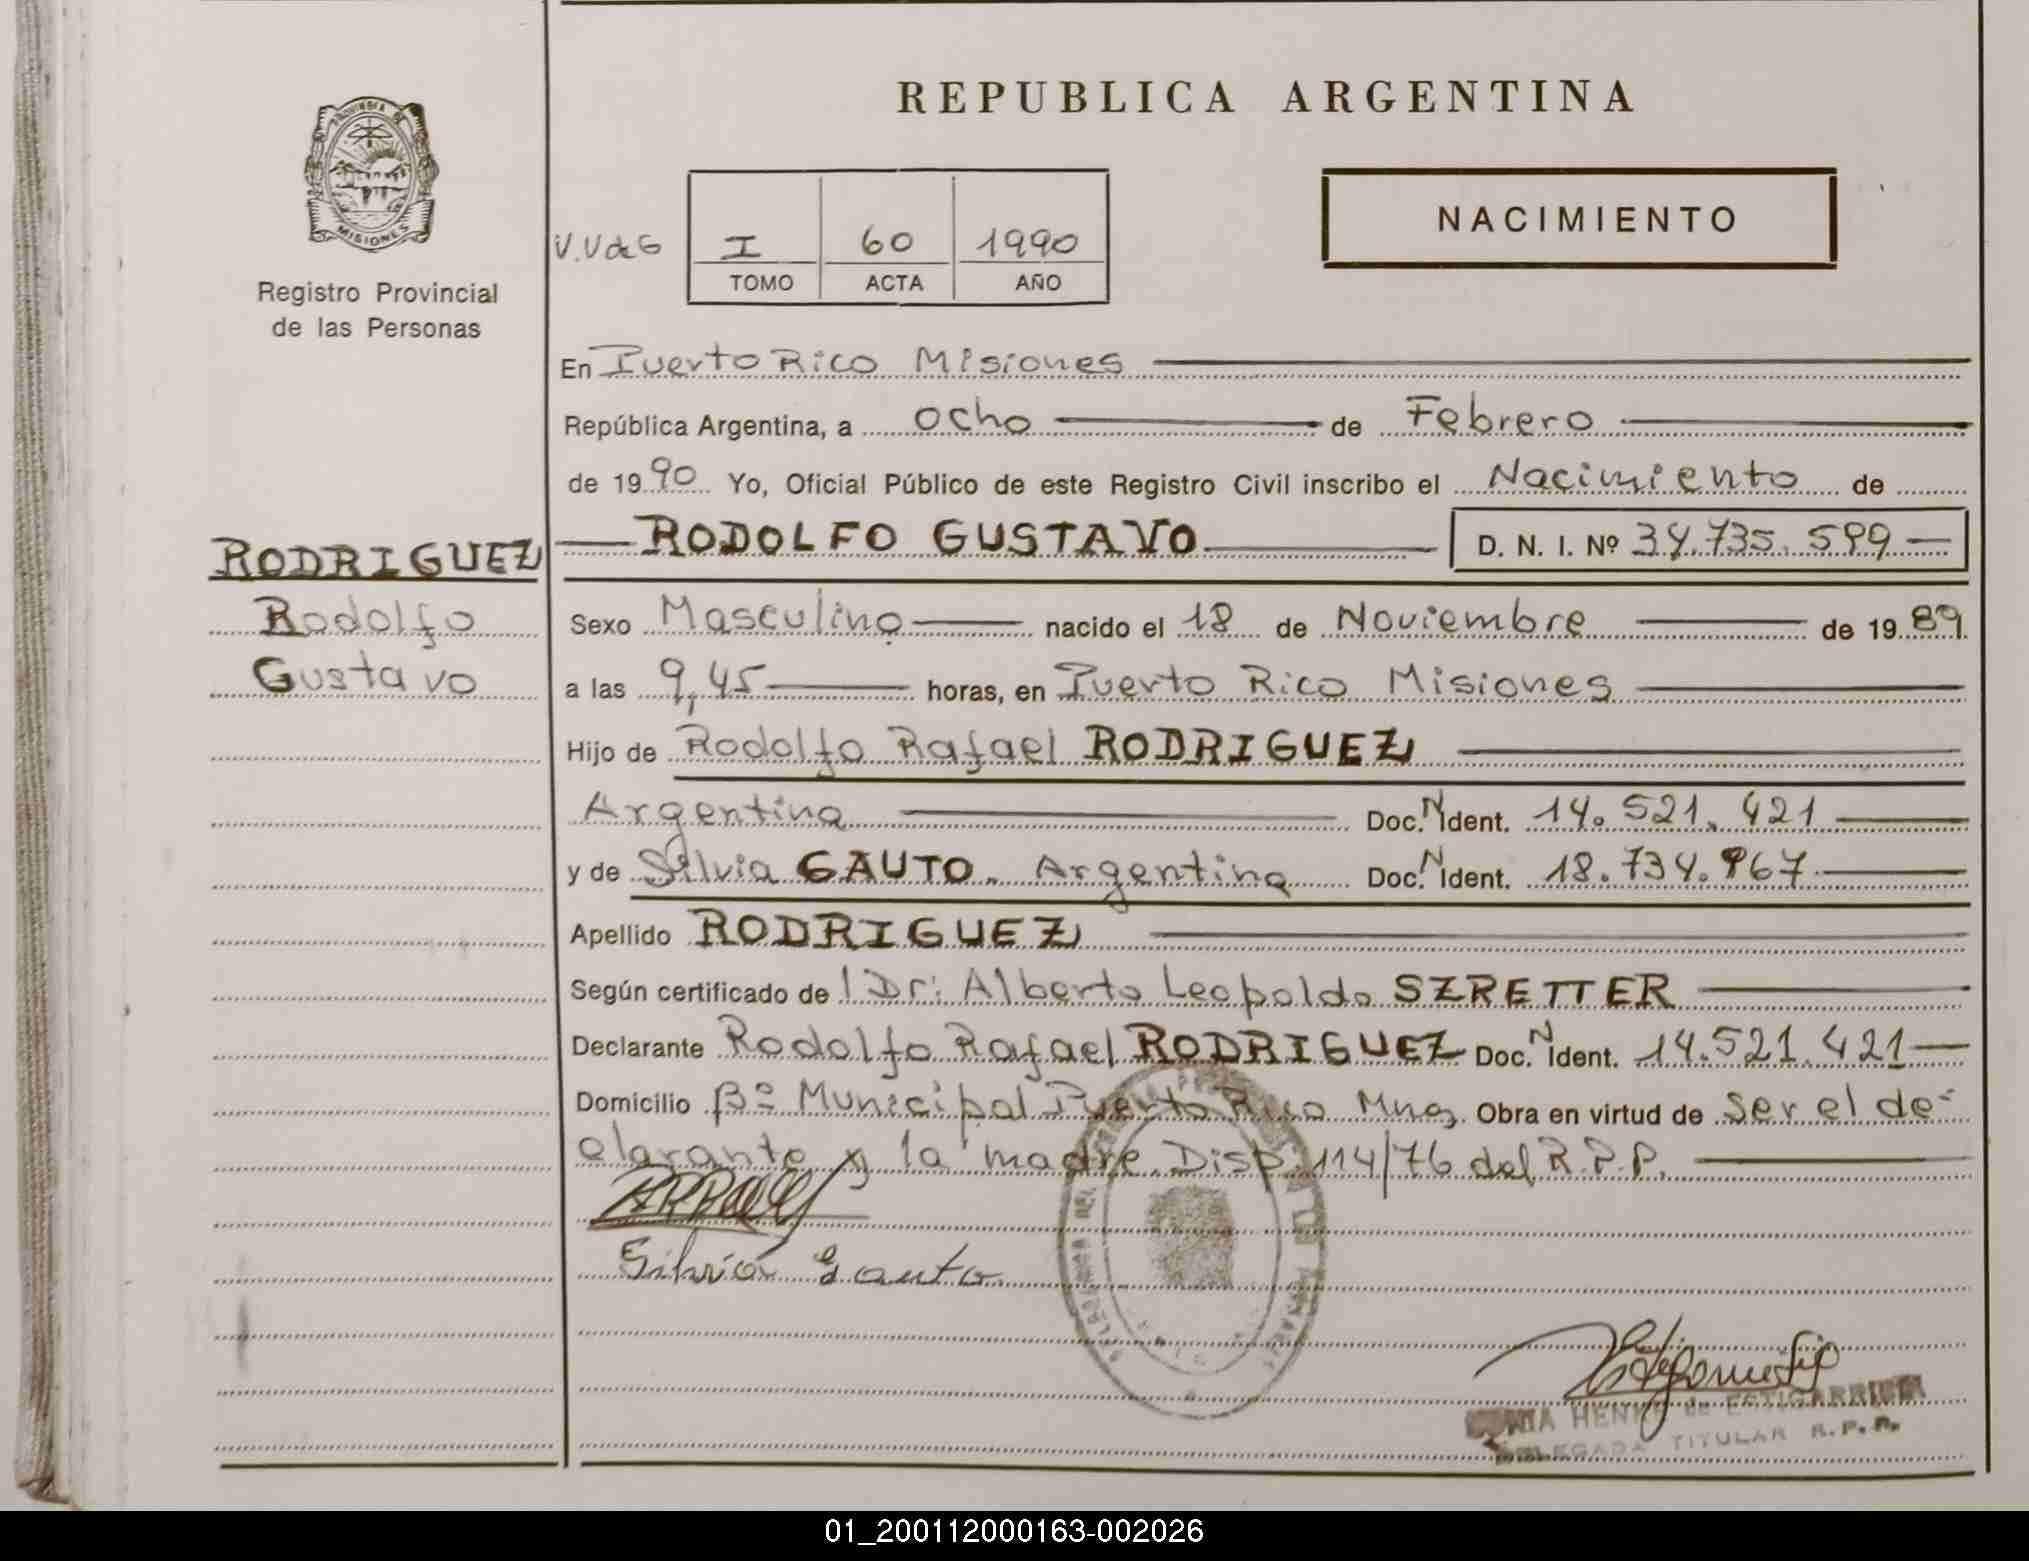 REPUBLICA ARGENTINA
PROVINCIA DE
MISIONES
Registro Provincial
de las Personas
V.V de G
I 60 1990
TOMO ACTA AÑO
NACIMIENTO
En Puerto Rico Misiones
República Argentina, a ocho de Febrero
de 1990 Yo, Oficial Público de este Registro Civil inscribo el Nacimiento de
RODRIGUEZ
Rodolfo
Gustavo
RODOLFO GUSTAVO D. N. I. Nº 34.735.599
Sexo Masculino nacido el 18 de Noviembre de 1989
a las 9,45 horas, en Puerto Rico Misiones
Hijo de Rodolfo Rafael RODRIGUEZ
Argentina Doc. N Ident. 14.521.421
y de Silvia GAUTO. Argentina Doc. N Ident. 18.734.967
Apellido RODRIGUEZ
Según certificado de l Dr: Alberto Leopoldo SZRETTER
Declarante Rodolfo Rafael RODRIGUEZ Doc. N Ident. 14.521.421
Domicilio Bº Municipal Puerto Rico Mnes Obra en virtud de ser el de-
clarante y la madre. Disp. 114/76 del R.P.P.
Silvia Gauto
HENN de ESTIGARRIBIA
DELEGADA TITULAR R.P.P.
01_200112000163-002026